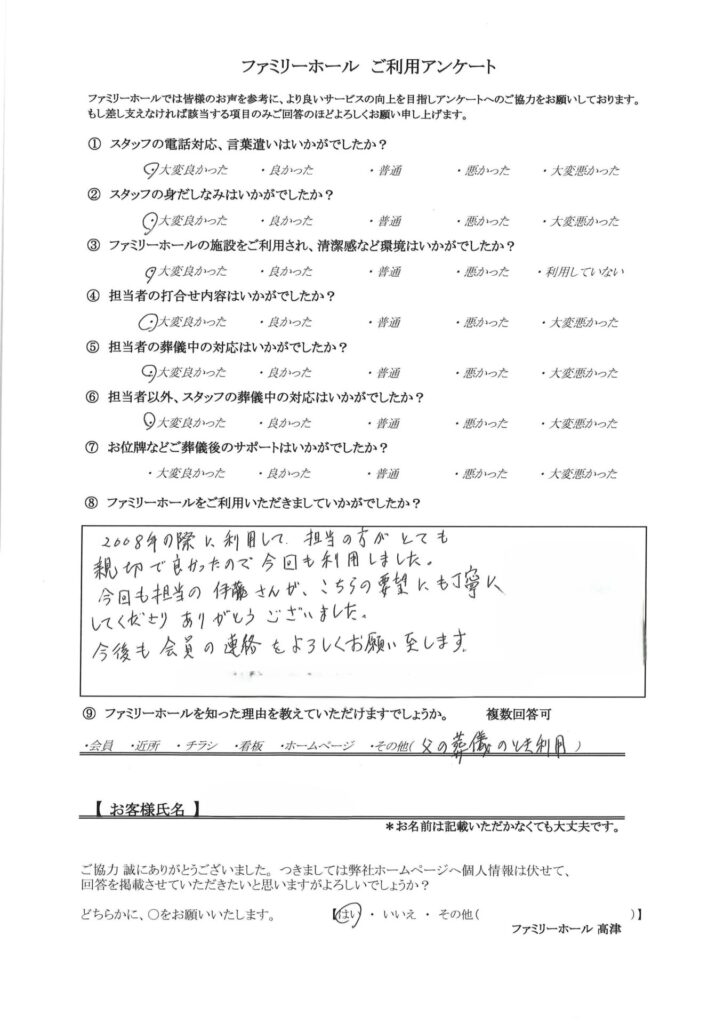 ファミリーホール ご利用アンケート
ファミリーホールでは皆様のお声を参考に、より良いサービスの向上を目指しアンケートへのご協力をお願いしております。
もし差し支えなければ該当する項目のみご回答のほどよろしくお願い申し上げます。
① スタッフの電話対応、言葉遣いはいかがでしたか?
・大変良かった ・良かった ・普通 ・悪かった ・大変悪かった
② スタッフの身だしなみはいかがでしたか?
・大変良かった ・良かった ・普通 ・悪かった ・大変悪かった
③ ファミリーホールの施設をご利用され、清潔感など環境はいかがでしたか?
・大変良かった ・良かった ・普通 ・悪かった ・利用していない
④ 担当者の打合せ内容はいかがでしたか?
・大変良かった ・良かった ・普通 ・悪かった ・大変悪かった
⑤ 担当者の葬儀中の対応はいかがでしたか?
・大変良かった ・良かった ・普通 ・悪かった ・大変悪かった
⑥ 担当者以外、スタッフの葬儀中の対応はいかがでしたか?
・大変良かった ・良かった ・普通 ・悪かった ・大変悪かった
⑦ お位牌などご葬儀後のサポートはいかがでしたか?
・大変良かった ・良かった ・普通 ・悪かった ・大変悪かった
⑧ ファミリーホールをご利用いただきましていかがでしたか?
2008年の際に利用して、担当の方がとても
親切で良かったので今回も利用しました。
今回も担当の伊藤さんが、こちらの要望にも丁寧に
してくださり ありがとうございました。
今後も会員の連絡をよろしくお願い致します。
⑨ ファミリーホールを知った理由を教えていただけますでしょうか。 複数回答可
・会員 ・近所 ・チラシ ・看板 ・ホームページ ・その他( 父の葬儀のとき利用 )
【 お客様氏名 】
*お名前は記載いただかなくても大丈夫です。
ご協力 誠にありがとうございました。つきましては弊社ホームページへ個人情報は伏せて、
回答を掲載させていただきたいと思いますがよろしいでしょうか?
どちらかに、○をお願いいたします。 【はい ・ いいえ ・ その他( )】
ファミリーホール 高津